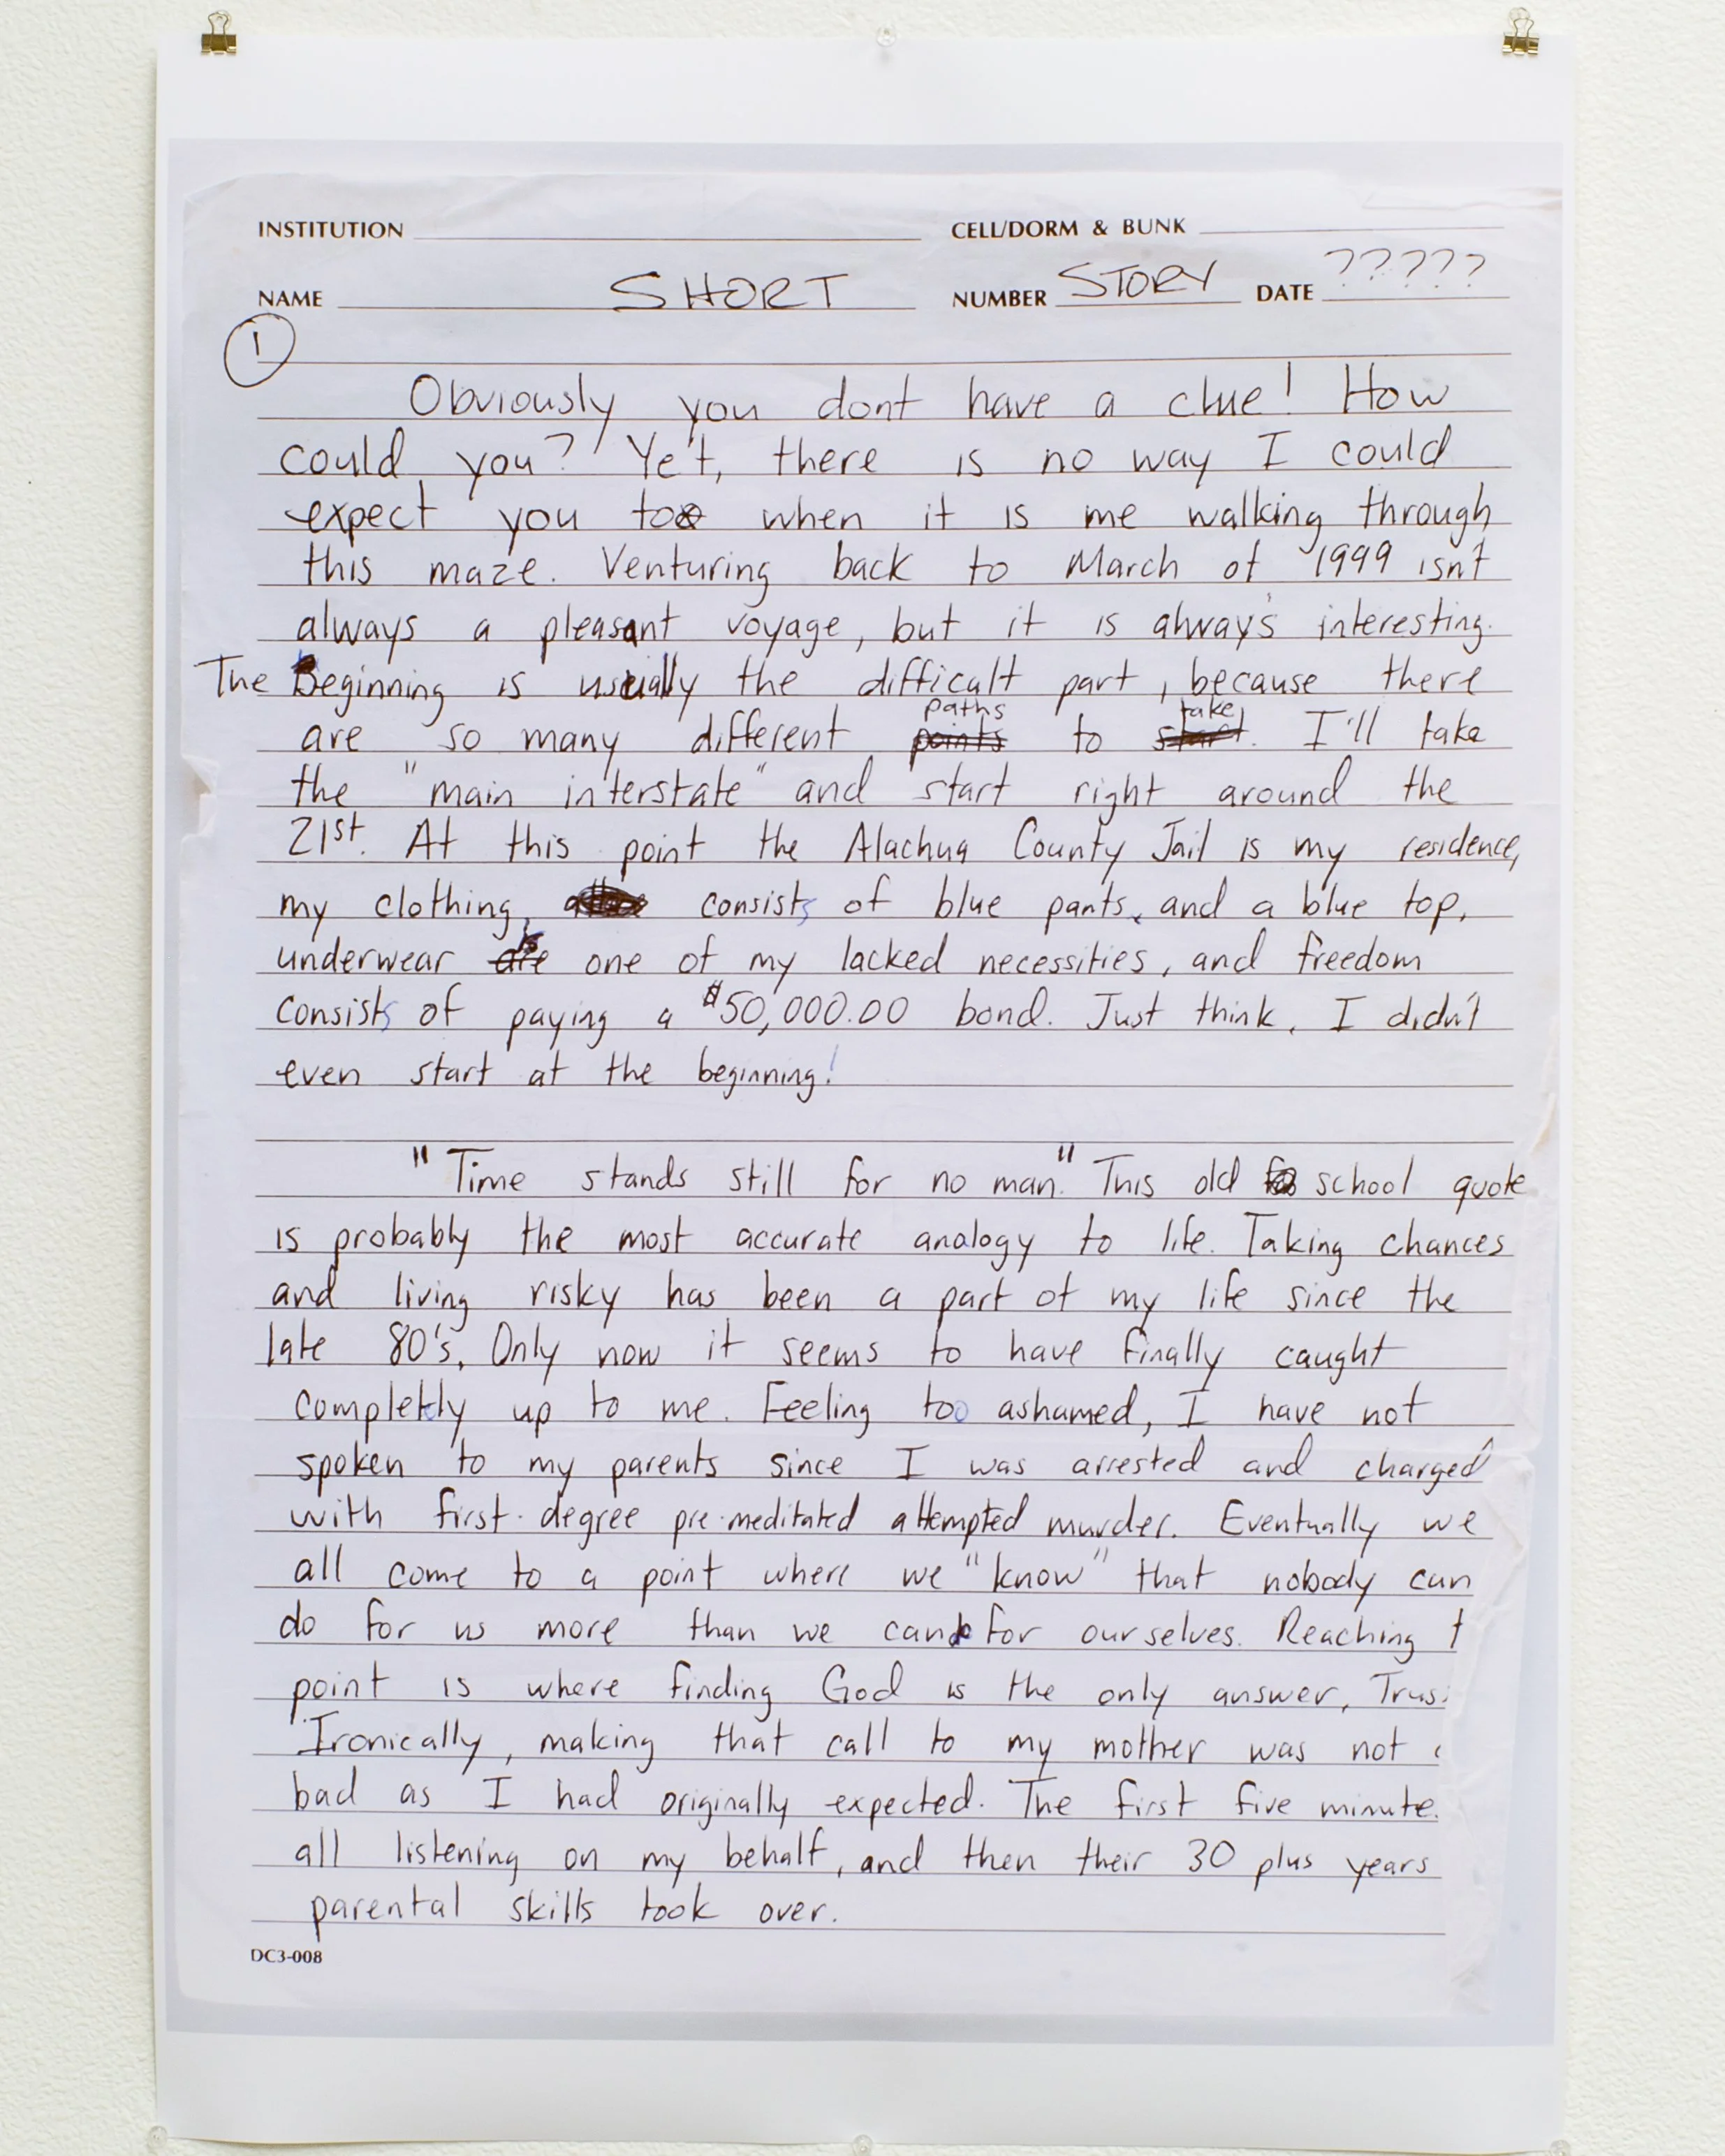 INSTITUTION CELL/DORM & BUNK
NAME SHORT NUMBER STORY DATE ?????
1
Obviously you dont have a clue! How
could you? Yet, there is no way I could
expect you to when it is me walking through
this maze. Venturing back to March of 1999 isn't
always a pleasant voyage, but it is always interesting.
The Beginning is usually the difficult part, because there
paths take
are so many different points to start. I'll take
the "main interstate" and start right around the
21st. At this point the Alachua County Jail is my residence,
my clothing, consists of blue pants, and a blue top,
underwear is one of my lacked necessities, and freedom
consists of paying a $50,000.00 bond. Just think, I didn't
even start at the beginning!
"Time stands still for no man." This old school quote
is probably the most accurate analogy to life. Taking chances
and living risky has been a part of my life since the
late 80's. Only now it seems to have finally caught
completely up to me. Feeling too ashamed, I have not
spoken to my parents since I was arrested and charged
with first-degree pre-meditated attempted murder. Eventually we
all come to a point where we "know" that nobody can
do for us more than we can for ourselves. Reaching t
point is where finding God is the only answer, Trus
Ironically, making that call to my mother was not
bad as I had originally expected. The first five minute
all listening on my behalf, and then their 30 plus years
parental skills took over.
DC3-008